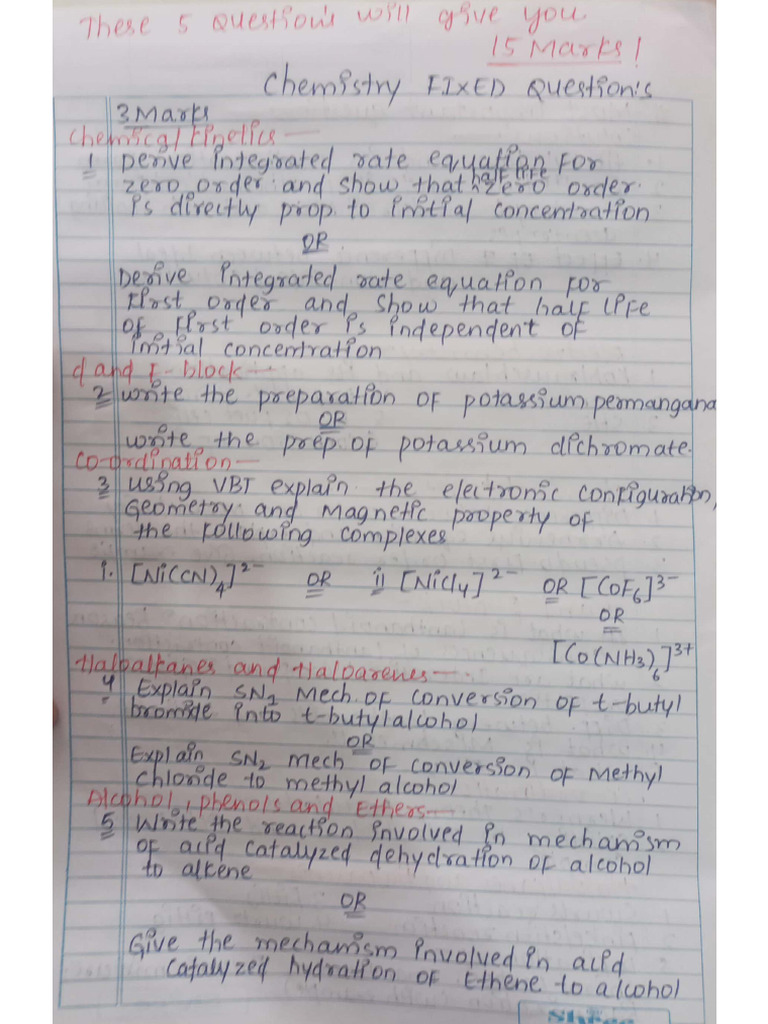 These 5 Question's will give you
15 Marks!
Chemistry FIXED Question's
3 Marks
Chemical Kinetics —
1 Derive integrated rate equation for
zero order and show that half life zero order
is directly prop. to initial concentration
OR
Derive integrated rate equation for
First order and show that half life
of First order is independent of
initial concentration
d and F-block —
2 write the preparation of potassium permangana
OR
write the prep of potassium dichromate.
Co-ordination —
3 using VBT explain the electronic configuration,
Geometry and Magnetic property of
the following complexes
i. [Ni(CN)4]2- OR ii [NiCl4]2- OR [CoF6]3-
OR
[Co(NH3)6]3+
Haloalkanes and Haloarenes —
4 Explain SN1 Mech. of conversion of t-butyl
bromide into t-butylalcohol
OR
Explain SN2 mech of conversion of Methyl
chloride to methyl alcohol
Alcohol, phenols and Ethers —
5 Write the reaction involved in mechanism
of acid catalyzed dehydration of alcohol
to alkene
OR
Give the mechanism involved in acid
catalyzed hydration of Ethene to alcohol